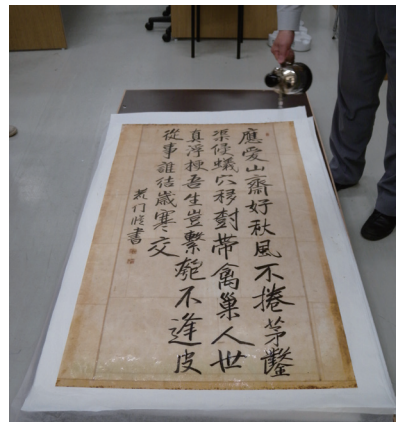 應愛山齋好秋風不捲茅鑿
渠侵蟻穴移封帶禽巢人世
真浮梗吾生豈繫匏不逢皮
從事誰結歲寒交
書